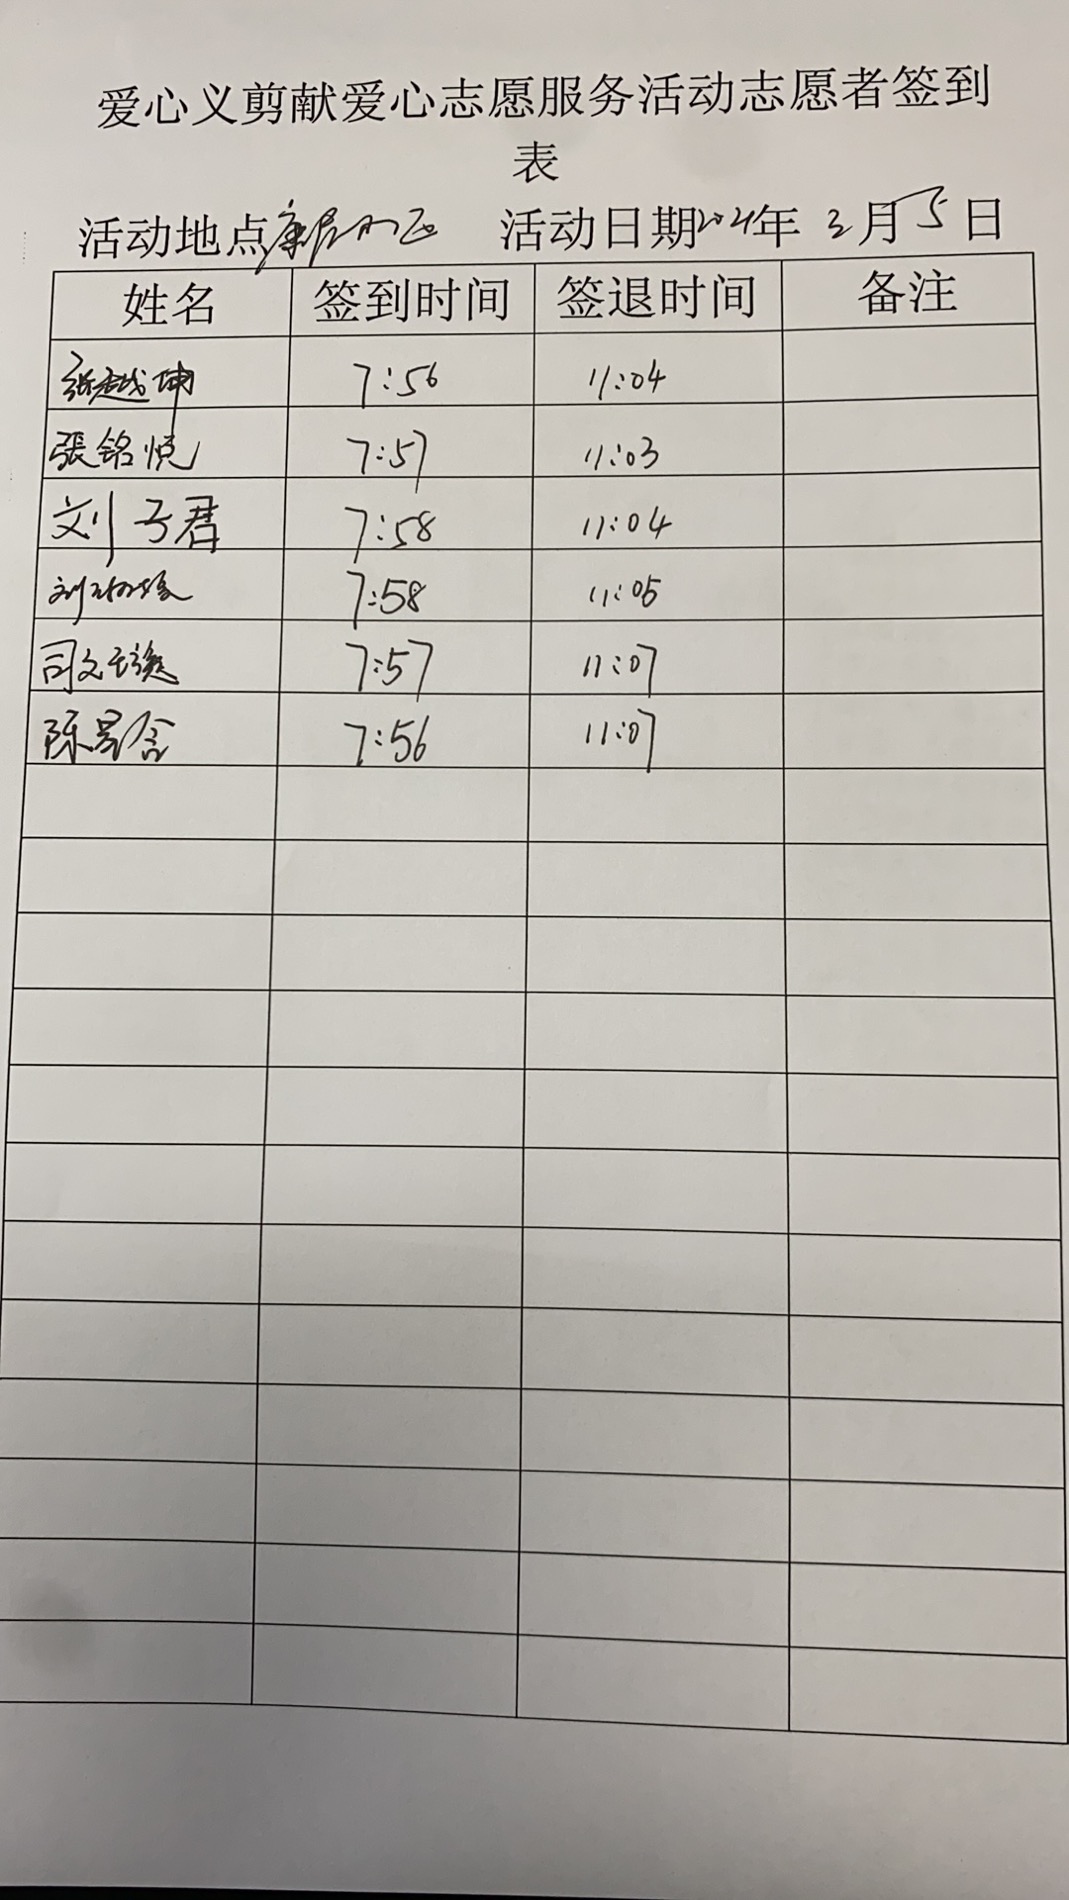 爱心义剪献爱心志愿服务活动志愿者签到
表
活动地点康居小区 活动日期2024年3月5日
姓名 签到时间 签退时间 备注
张越坤 7:56 11:04
張铭悦 7:57 11:03
刘子君 7:58 11:04
刘 7:58 11:05
司文 7:57 11:07
陈昱含 7:56 11:07